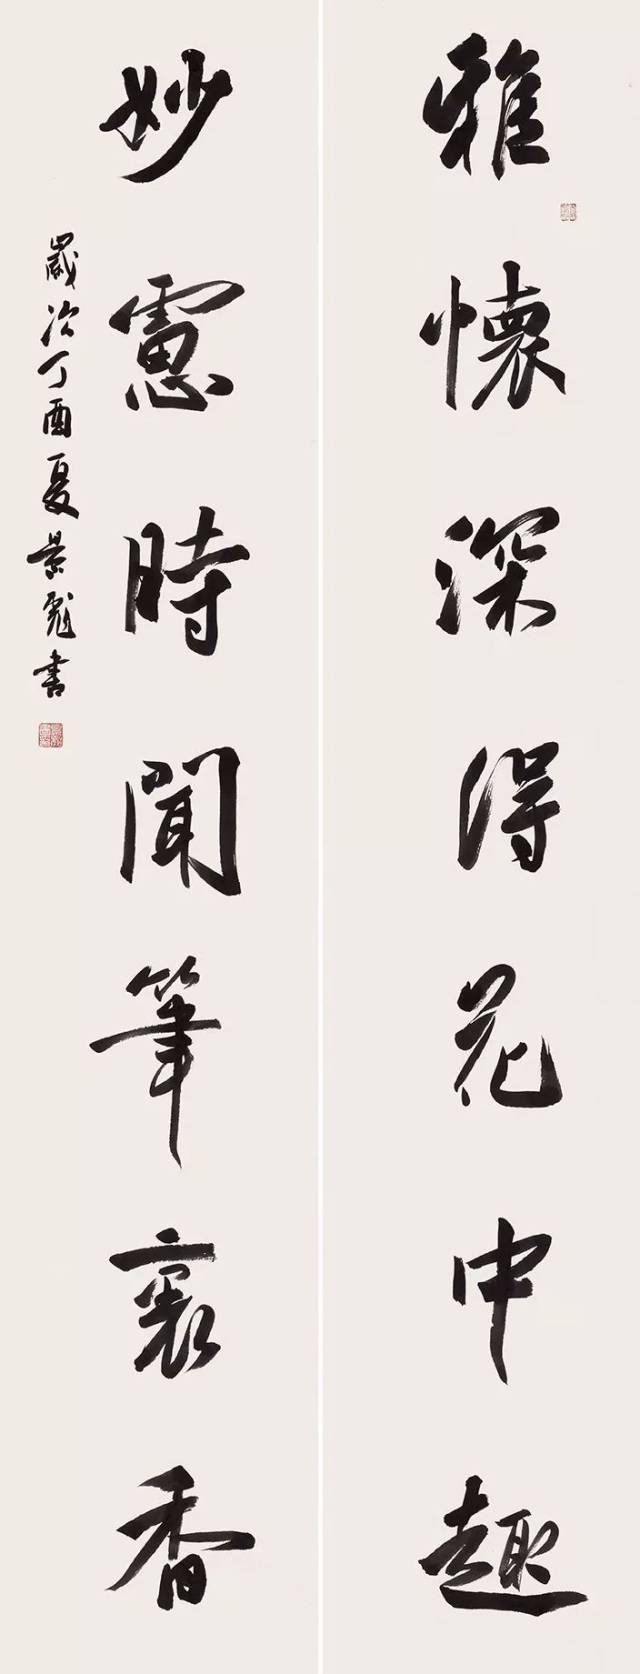 雅懷深得花中趣
妙慮時聞筆裏香
歲次丁酉夏景書